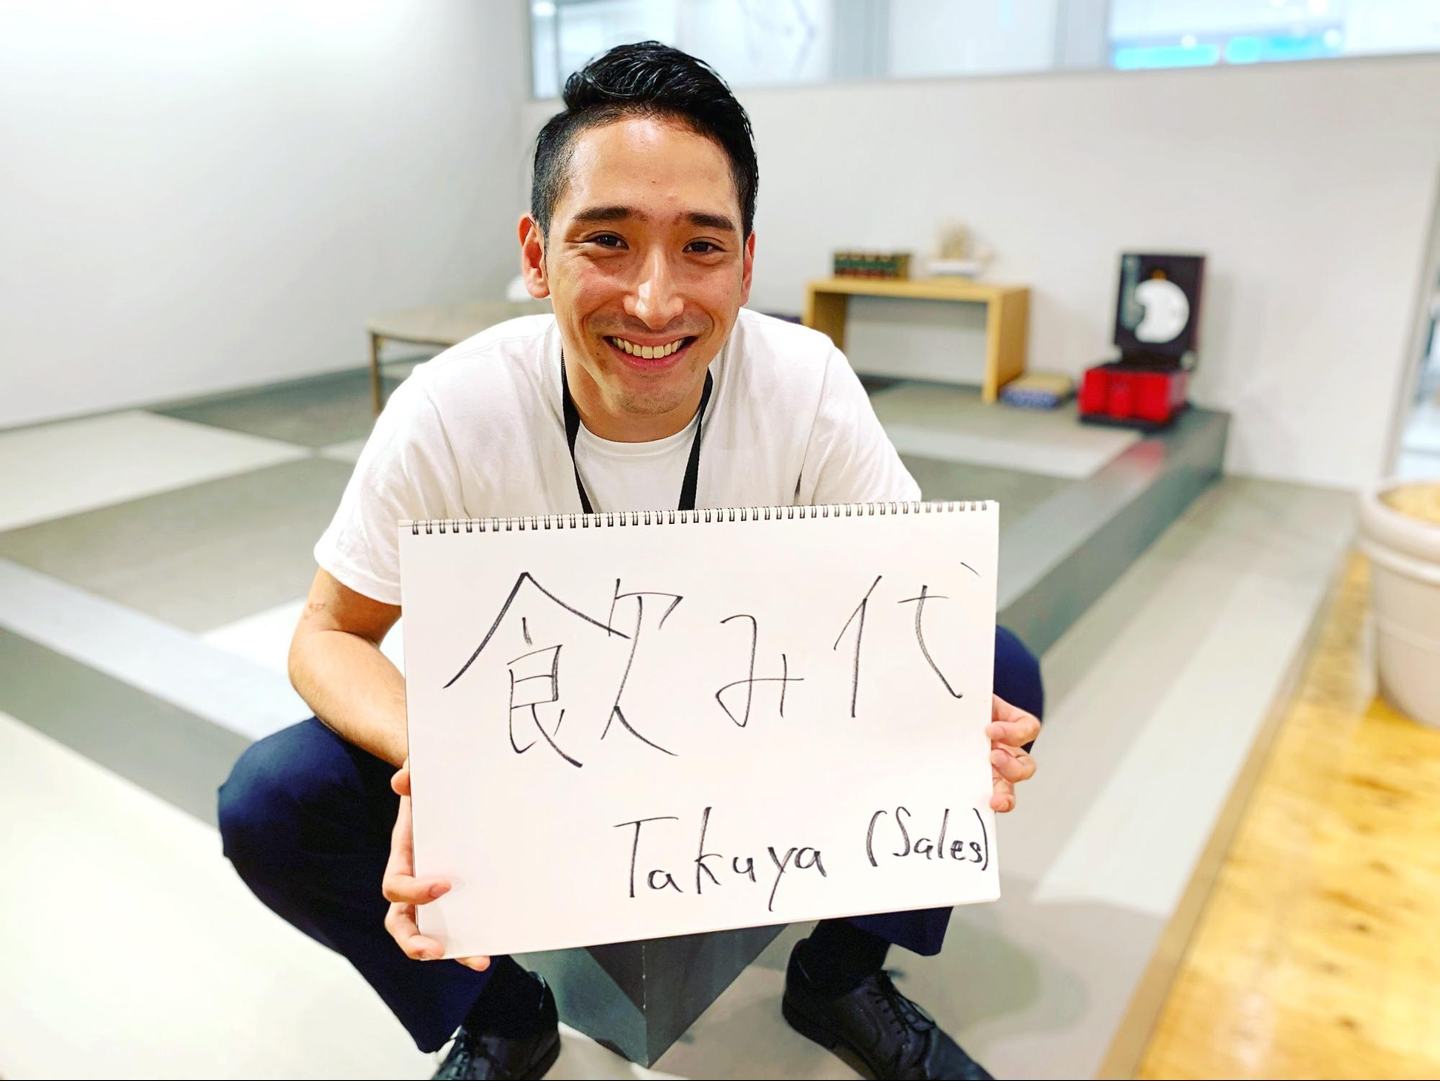 飲み代
Takuya (Sales)